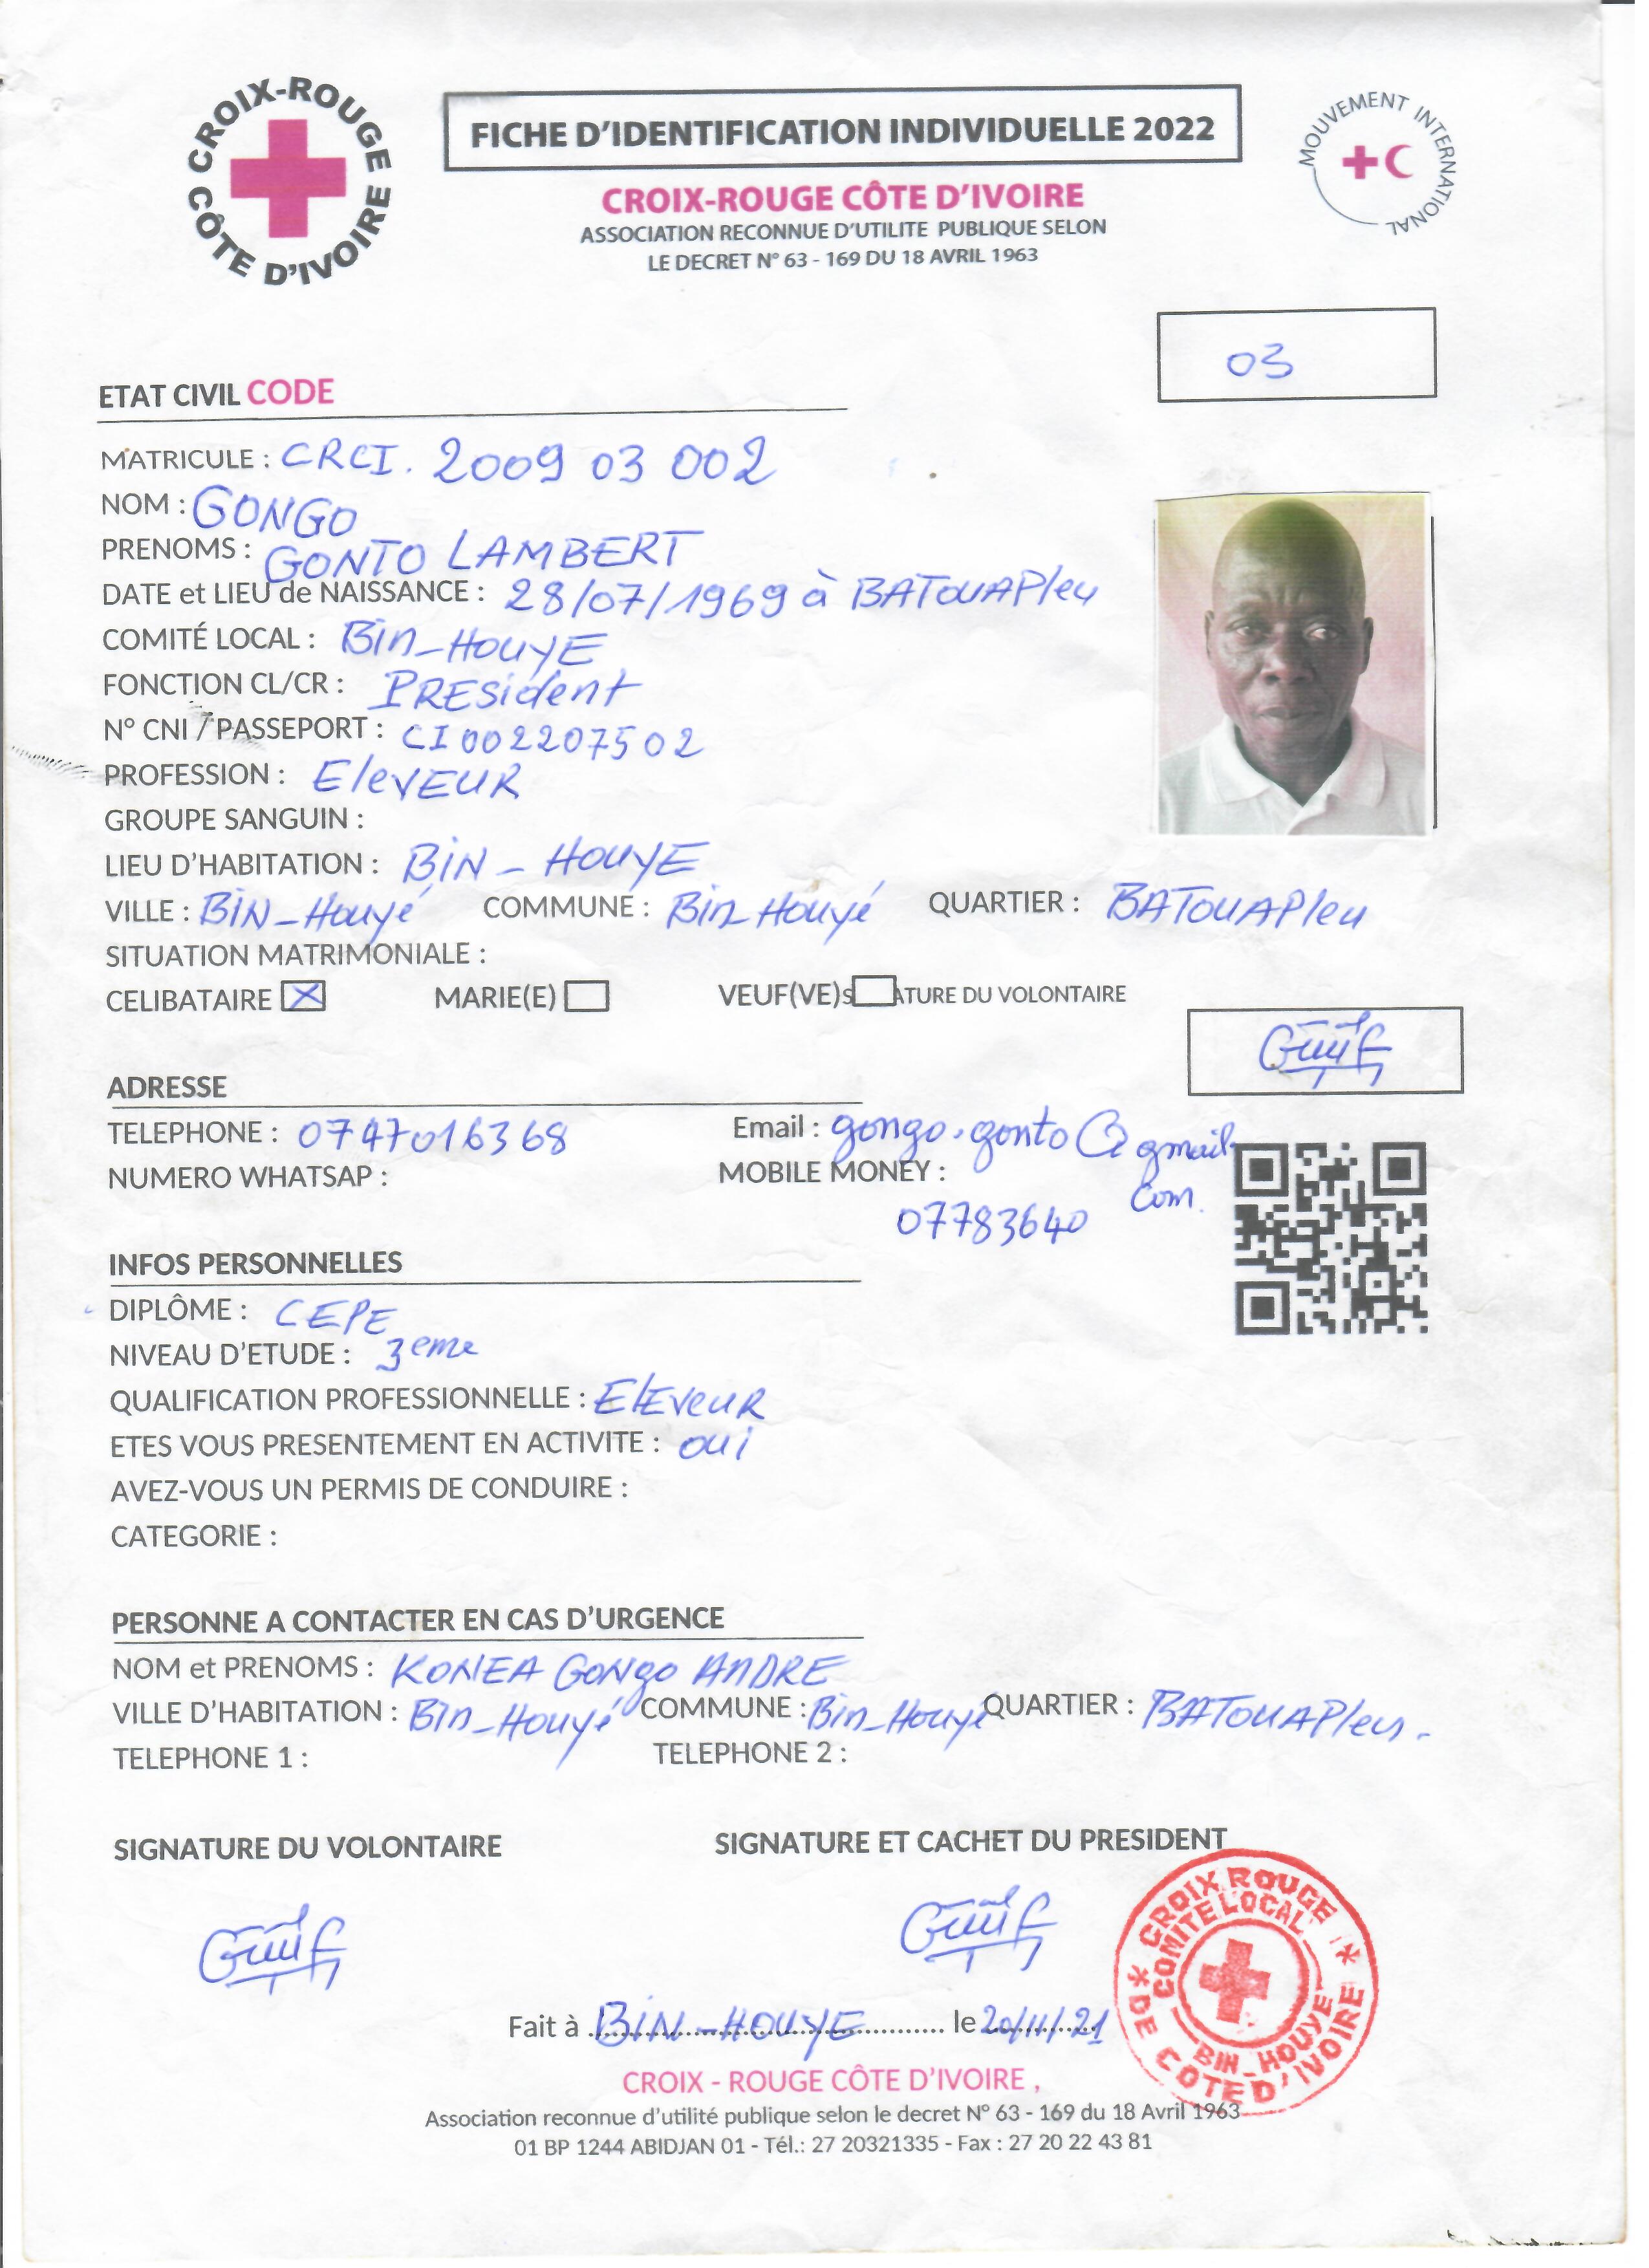 CROIX-ROUGE CÔTE D'IVOIRE
FICHE D'IDENTIFICATION INDIVIDUELLE 2022
MOUVEMENT INTERNATIONAL
CROIX-ROUGE CÔTE D'IVOIRE
ASSOCIATION RECONNUE D'UTILITE PUBLIQUE SELON
LE DECRET N° 63 - 169 DU 18 AVRIL 1963
03
ETAT CIVIL CODE
MATRICULE : CRCI. 2009 03 002
NOM : GONGO
PRENOMS : GONTO LAMBERT
DATE et LIEU de NAISSANCE : 28/07/1969 à BATOUAPleu
COMITÉ LOCAL : Bin-HouyE
FONCTION CL/CR : PRESident
N° CNI / PASSEPORT : CI002207502
PROFESSION : EleVEUR
GROUPE SANGUIN :
LIEU D'HABITATION : BiN - HouyE
VILLE : BiN-Houyé COMMUNE : Bin Houyé QUARTIER : BATOUAPleu
SITUATION MATRIMONIALE :
CELIBATAIRE X MARIE(E) VEUF(VE) S ATURE DU VOLONTAIRE
ADRESSE
TELEPHONE : 0747016368 Email : gongo.gonto@gmail.
com.
NUMERO WHATSAP : MOBILE MONEY :
07783640
INFOS PERSONNELLES
DIPLÔME : CEPE
NIVEAU D'ETUDE : 3eme
QUALIFICATION PROFESSIONNELLE : ElEveuR
ETES VOUS PRESENTEMENT EN ACTIVITE : oui
AVEZ-VOUS UN PERMIS DE CONDUIRE :
CATEGORIE :
PERSONNE A CONTACTER EN CAS D'URGENCE
NOM et PRENOMS : KONEA GoNgo ANDRE
VILLE D'HABITATION : Bin-Houyé COMMUNE : Bin-Houyé QUARTIER : BATOUAPleu.
TELEPHONE 1 : TELEPHONE 2 :
SIGNATURE DU VOLONTAIRE SIGNATURE ET CACHET DU PRESIDENT
* CROIX ROUGE * DE COTE D'IVOIRE
COMITE LOCAL
BIN_HOUYE
Fait à BiN-HOUYE le 20/11/21
CROIX - ROUGE CÔTE D'IVOIRE ,
Association reconnue d'utilité publique selon le decret N° 63 - 169 du 18 Avril 1963
01 BP 1244 ABIDJAN 01 - Tél.: 27 20321335 - Fax : 27 20 22 43 81